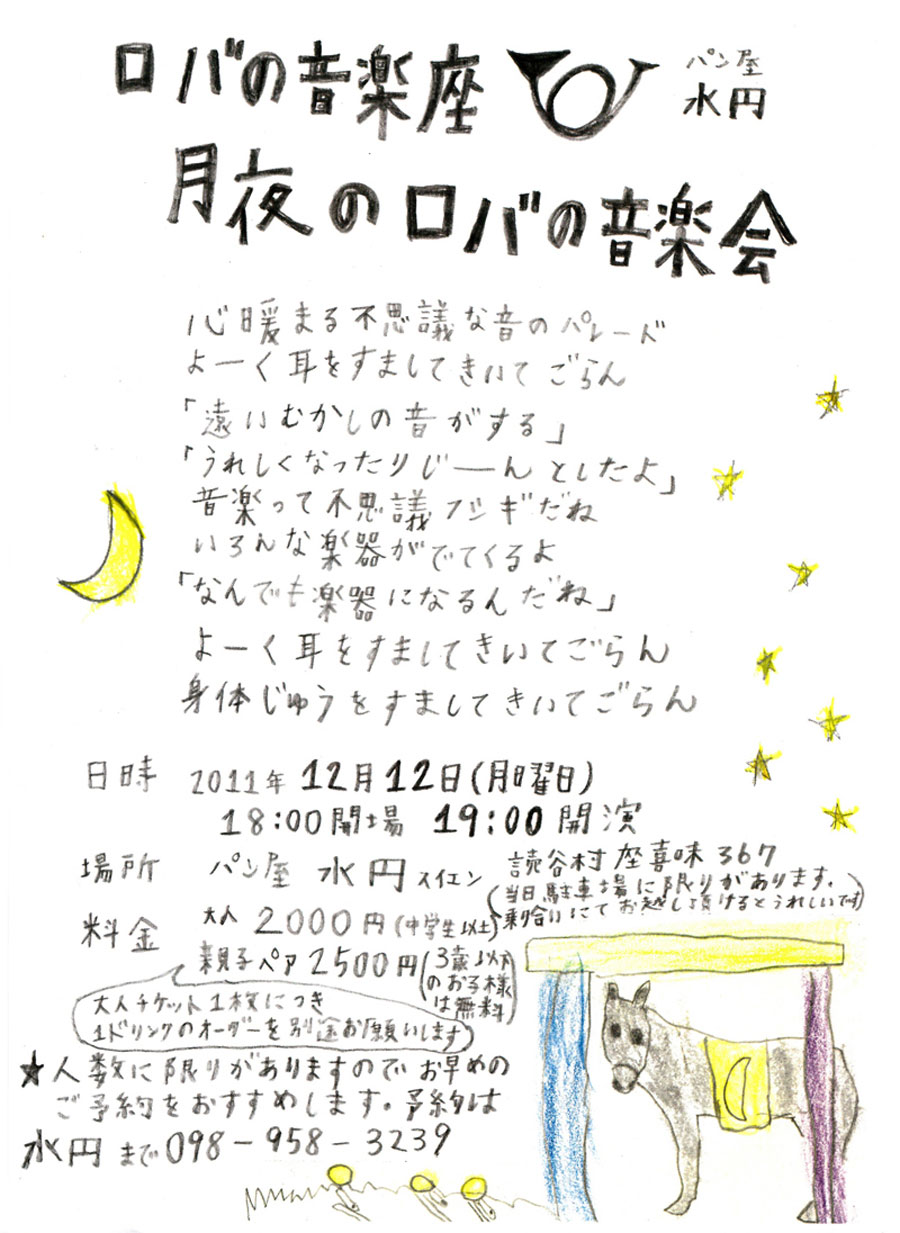 ロバの音楽座
パン屋
水円
月夜のロバの音楽会
心暖まる不思議な音のパレード
よーく耳をすましてきいてごらん
「遠いむかしの音がする」
「うれしくなったりじーんとしたよ」
音楽って不思議フシギだね
いろんな楽器がでてくるよ
「なんでも楽器になるんだね」
よーく耳をすましてきいてごらん
身体じゅうをすましてきいてごらん
日時 2011年 12月12日(月曜日)
18:00開場 19:00開演
場所 パン屋 水円 スイエン 読谷村座喜味367
(当日駐車場に限りがあります.
乗り合いにてお越し頂けるとうれしいです)
料金 大人 2000円(中学生以上)
親子ペア 2500円(3歳以下
のお子様
は無料)
大人チケット1枚につき
1ドリンクのオーダーを別途お願いします
★人数に限りがありますのでお早めの
ご予約をおすすめします。予約は
水円まで098-958-3239